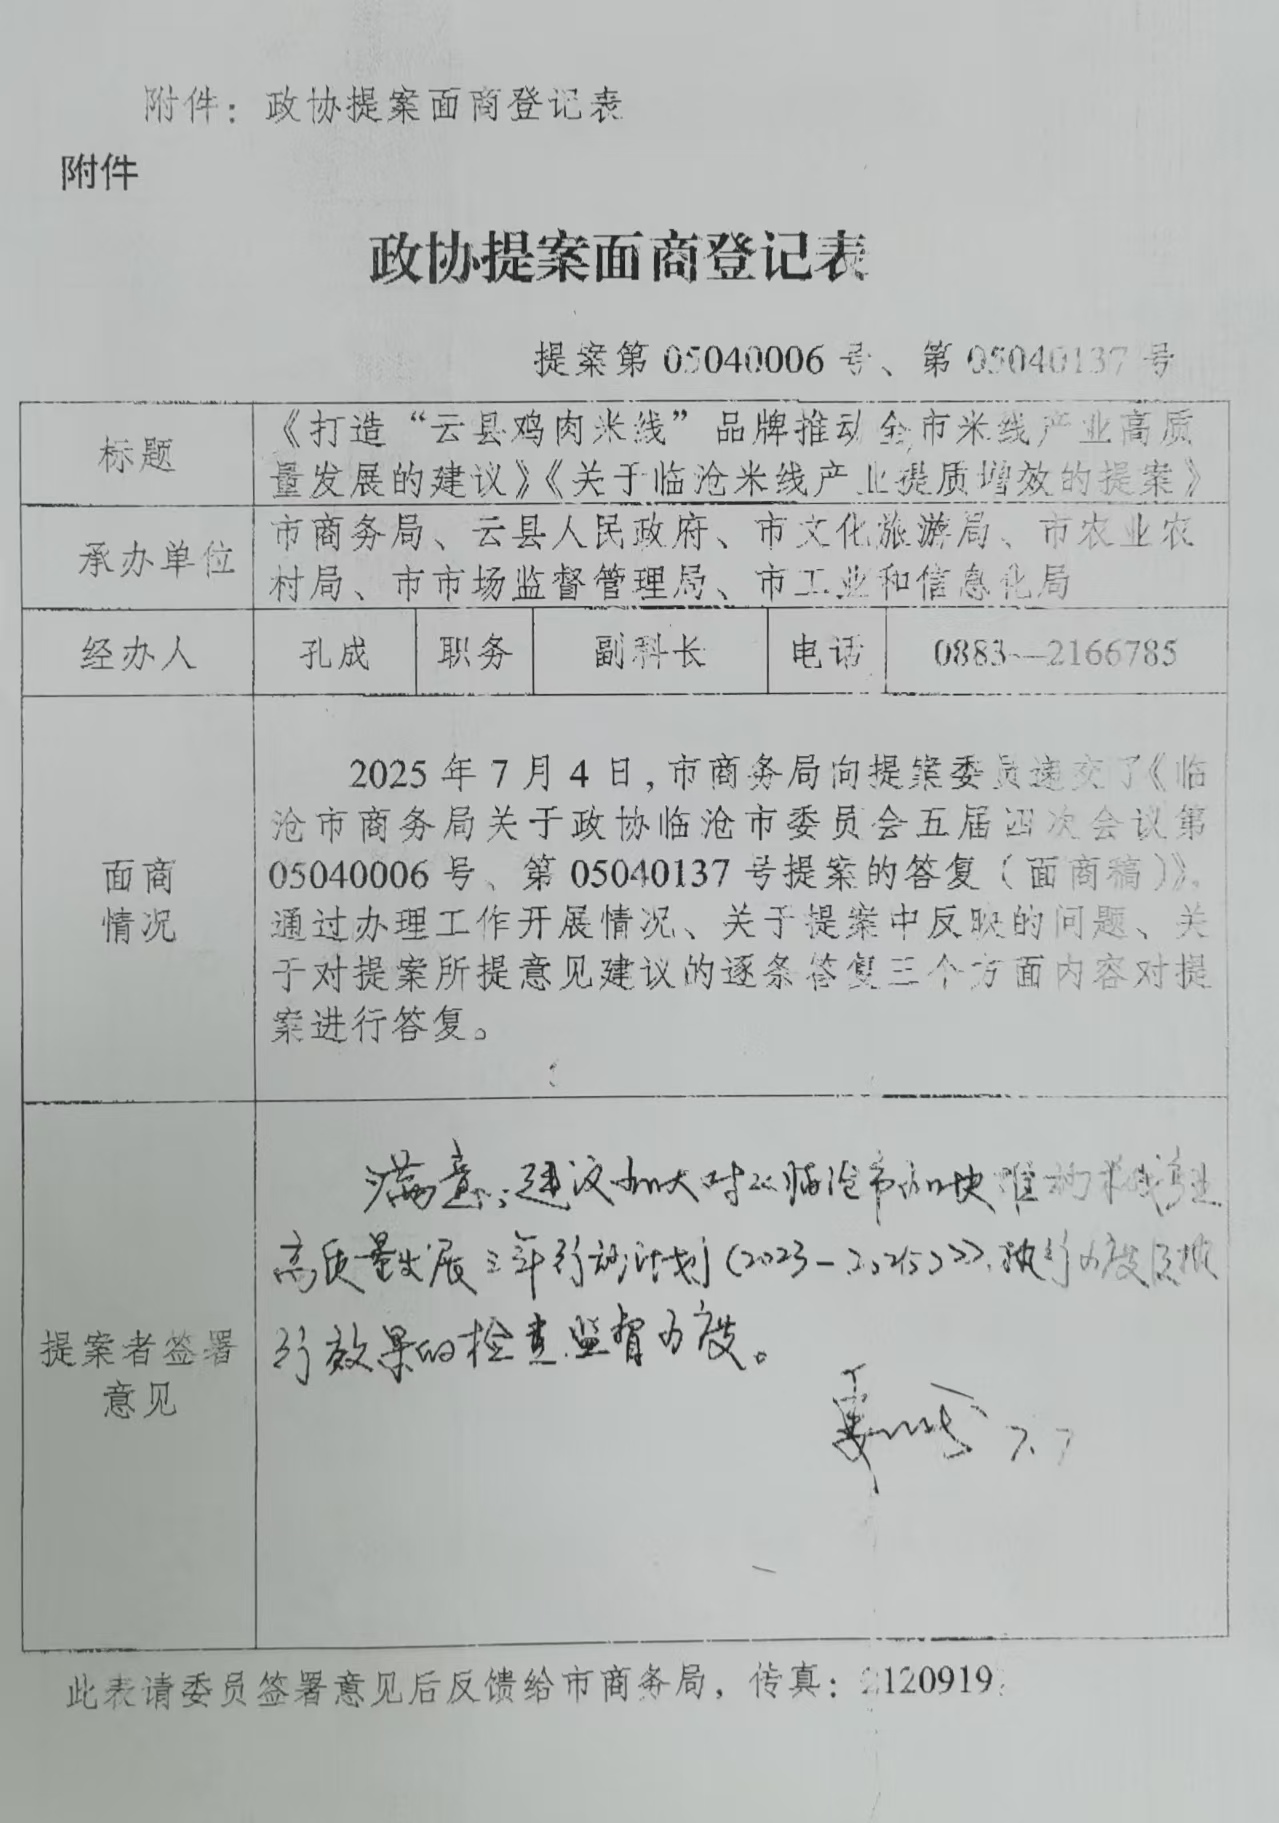 附件：政协提案面商登记表
附件
政协提案面商登记表
提案第 05040006 号、第 05040137 号
标题
《打造“云县鸡肉米线”品牌推动全市米线产业高质
量发展的建议》《关于临沧米线产业提质增效的提案》
承办单位
市商务局、云县人民政府、市文化旅游局、市农业农
村局、市市场监督管理局、市工业和信息化局
经办人 孔成 职务 副科长 电话 0883—2166785
面商
情况
2025 年 7 月 4 日，市商务局向提案委员递交了《临
沧市商务局关于政协临沧市委员会五届四次会议第
05040006 号、第 05040137 号提案的答复（面商稿）》，
通过办理工作开展情况、关于提案中反映的问题、关
于对提案所提意见建议的逐条答复三个方面内容对提
案进行答复。
提案者签署
意见
满意；建议加大对《临沧市加快推动米线产业
高质量发展三年行动计划（2023－2025）》执行力度及执
行效果的检查监督力度。
7.7
此表请委员签署意见后反馈给市商务局，传真：2120919